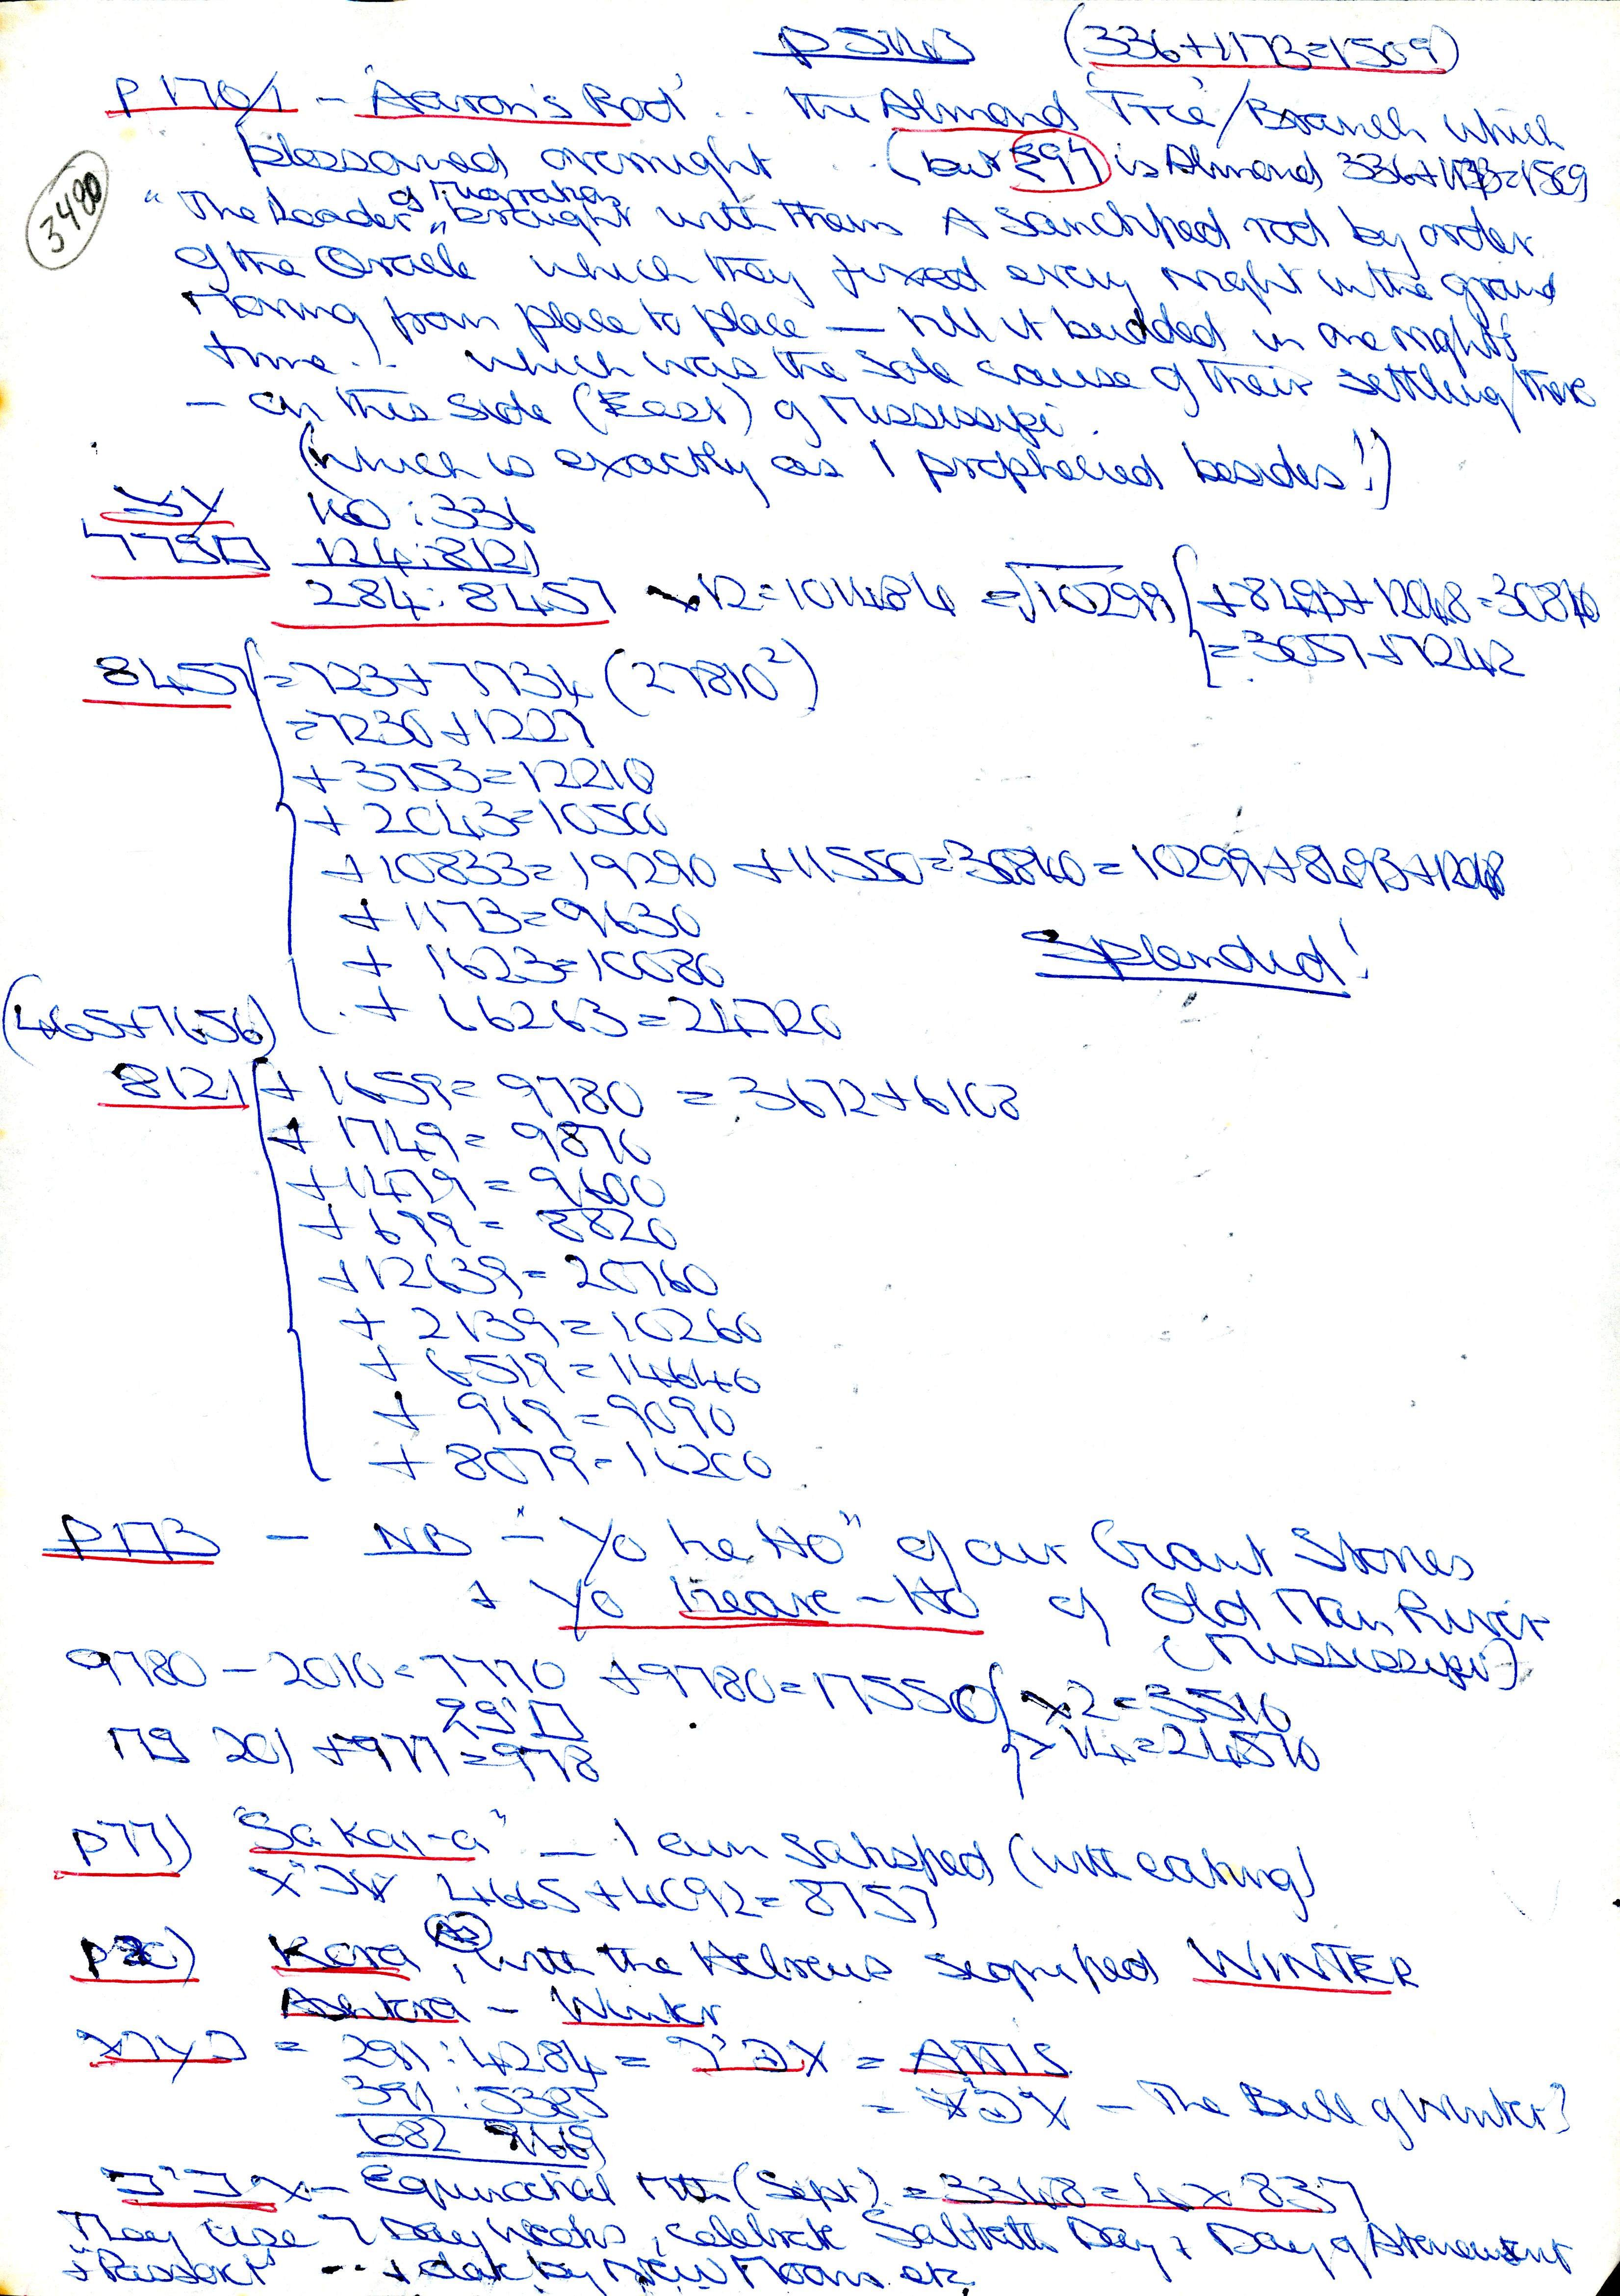 (336+1173=1509)
P170/1 - 'Aaron's Rod' .. the Almond 'Tree'/Branch which
blossomed overnight ... (but 394 is Almond 336+1173=1509
3480
of Migration
"The Leader" "brought with them A Sanctified rod by order
of the Oracle which they fixed every night in the ground
Moving from place to place — till it budded in one night's
time ... which was the sole cause of their settling there
- on this side (East) of Mississipi.
(which is exactly as I prophecied besides!)
עץ 160 : 336
124 : 8121
284 : 8457 x 12 = 101484 = √10299 { + 8493 + 12048 = 30840
= 3057 + 7242
8457 { = 723 + 7734 (27810²)
= 7230 + 1227
+ 3753 = 12210
+ 2043 = 10500
+ 10833 = 19290 + 11550 = 30840 = 10299 + 8493 + 12048
+ 1173 = 9630
+ 1623 = 10080
Splendid!
+ 16263 = 24720
(465+7656)
8121 { + 1659 = 9780 = 3672 + 6108
+ 1749 = 9870
+ 1479 = 9600
+ 699 = 8820
+ 12639 = 20760
+ 2139 = 10260
+ 6519 = 14640
+ 969 = 9090
+ 8079 = 16200
P173 - NB - "Yo he Ho" of our Giant Stones
+ Yo Heave-Ho of Old Man River
(Mississipi)
9780 - 2010 = 7770 + 9780 = 17550 { x 2 = 3510
x 14 = 24570
201 + 977 = 978
p77) "Sa Kar-a" - I am satisfied (with eating)
4665 + 4092 = 8757
Kora, with the Hebrews signified WINTER
Ashkora - Winter
= 291 : 4284 = = ATTIS
391 : 5385 = - The Bull of Winter?
682 9669
- Equinoctial Mth (Sept) = 3348 = 4 x 837
They use 7 Day Weeks, celebrate Sabbath Day, + Day of Atonement
+ "Passover" ... + date by New Moons etc.